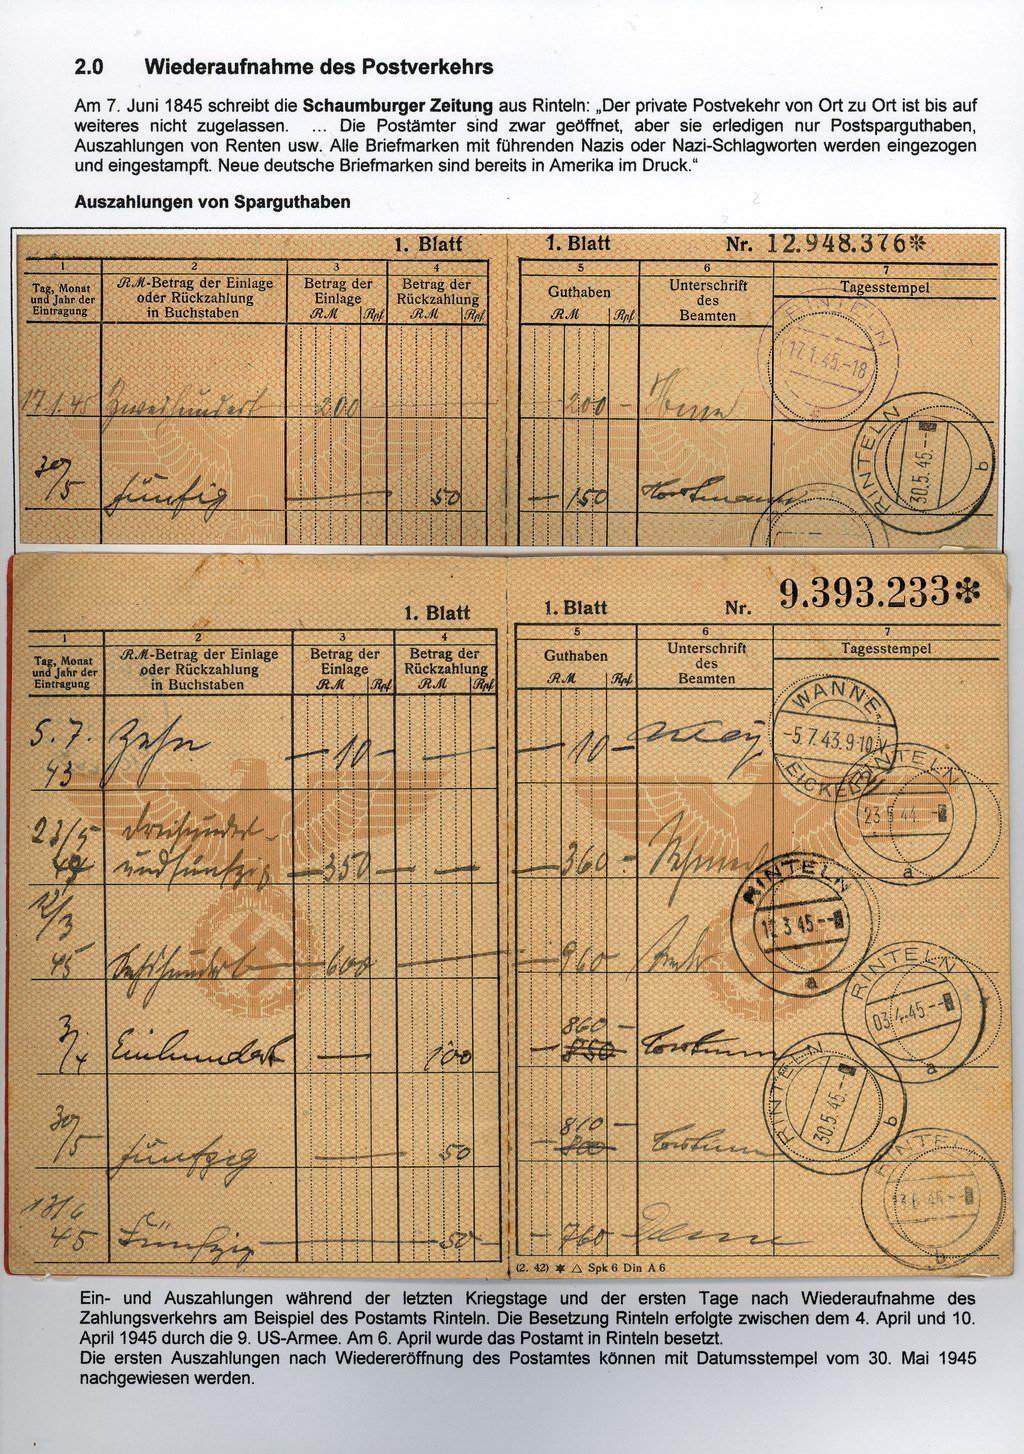 2.0 Wiederaufnahme des Postverkehrs
Am 7. Juni 1845 schreibt die Schaumburger Zeitung aus Rinteln: „Der private Postvekehr von Ort zu Ort ist bis auf
weiteres nicht zugelassen. ... Die Postämter sind zwar geöffnet, aber sie erledigen nur Postsparguthaben,
Auszahlungen von Renten usw. Alle Briefmarken mit führenden Nazis oder Nazi-Schlagworten werden eingezogen
und eingestampft. Neue deutsche Briefmarken sind bereits in Amerika im Druck."
Auszahlungen von Sparguthaben
1. Blatt 1. Blatt Nr. 12.948.376*
1 2 3 4 5 6 7
Tag, Monat und Jahr der Eintragung
RM-Betrag der Einlage oder Rückzahlung in Buchstaben
Betrag der Einlage RM Rpf
Betrag der Rückzahlung RM Rpf
Guthaben RM Rpf
Unterschrift des Beamten
Tagesstempel
RINTELN 17.1.45.-18
17.1.45 Zweihundert 200 200 -
RINTELN 30.5.45.-- b
30/5 fünfig 50 - 150 Horstmann
1. Blatt 1. Blatt Nr. 9.393.233*
1 2 3 4 5 6 7
Tag, Monat und Jahr der Eintragung
RM-Betrag der Einlage oder Rückzahlung in Buchstaben
Betrag der Einlage RM Rpf
Betrag der Rückzahlung RM Rpf
Guthaben RM Rpf
Unterschrift des Beamten
Tagesstempel
5.7.43 Zehn - 10 - - 10 -
WANNE-EICKEL -5.7.43.9-10V
23/5 44 dreihundert- undfünfzig - 350 - - 360 -
RINTELN 23.5.44.-- a
12/3 45 Sechshundert - 600 - 960
RINTELN 12.3.45-- a
3/4 Einhundert - 100 860 - 
RINTELN 03.4.45-- a
30/5 fünfzig - 50 810 -
RINTELN 30.5.45.-- b
13/6 45 Fünfzig - 50 - - 760 -
RINTELN 13.6.45-- b
(2. 42) ✶ △ Spk 6 Din A 6
Ein- und Auszahlungen während der letzten Kriegstage und der ersten Tage nach Wiederaufnahme des
Zahlungsverkehrs am Beispiel des Postamts Rinteln. Die Besetzung Rinteln erfolgte zwischen dem 4. April und 10.
April 1945 durch die 9. US-Armee. Am 6. April wurde das Postamt in Rinteln besetzt.
Die ersten Auszahlungen nach Wiedereröffnung des Postamtes können mit Datumsstempel vom 30. Mai 1945
nachgewiesen werden.